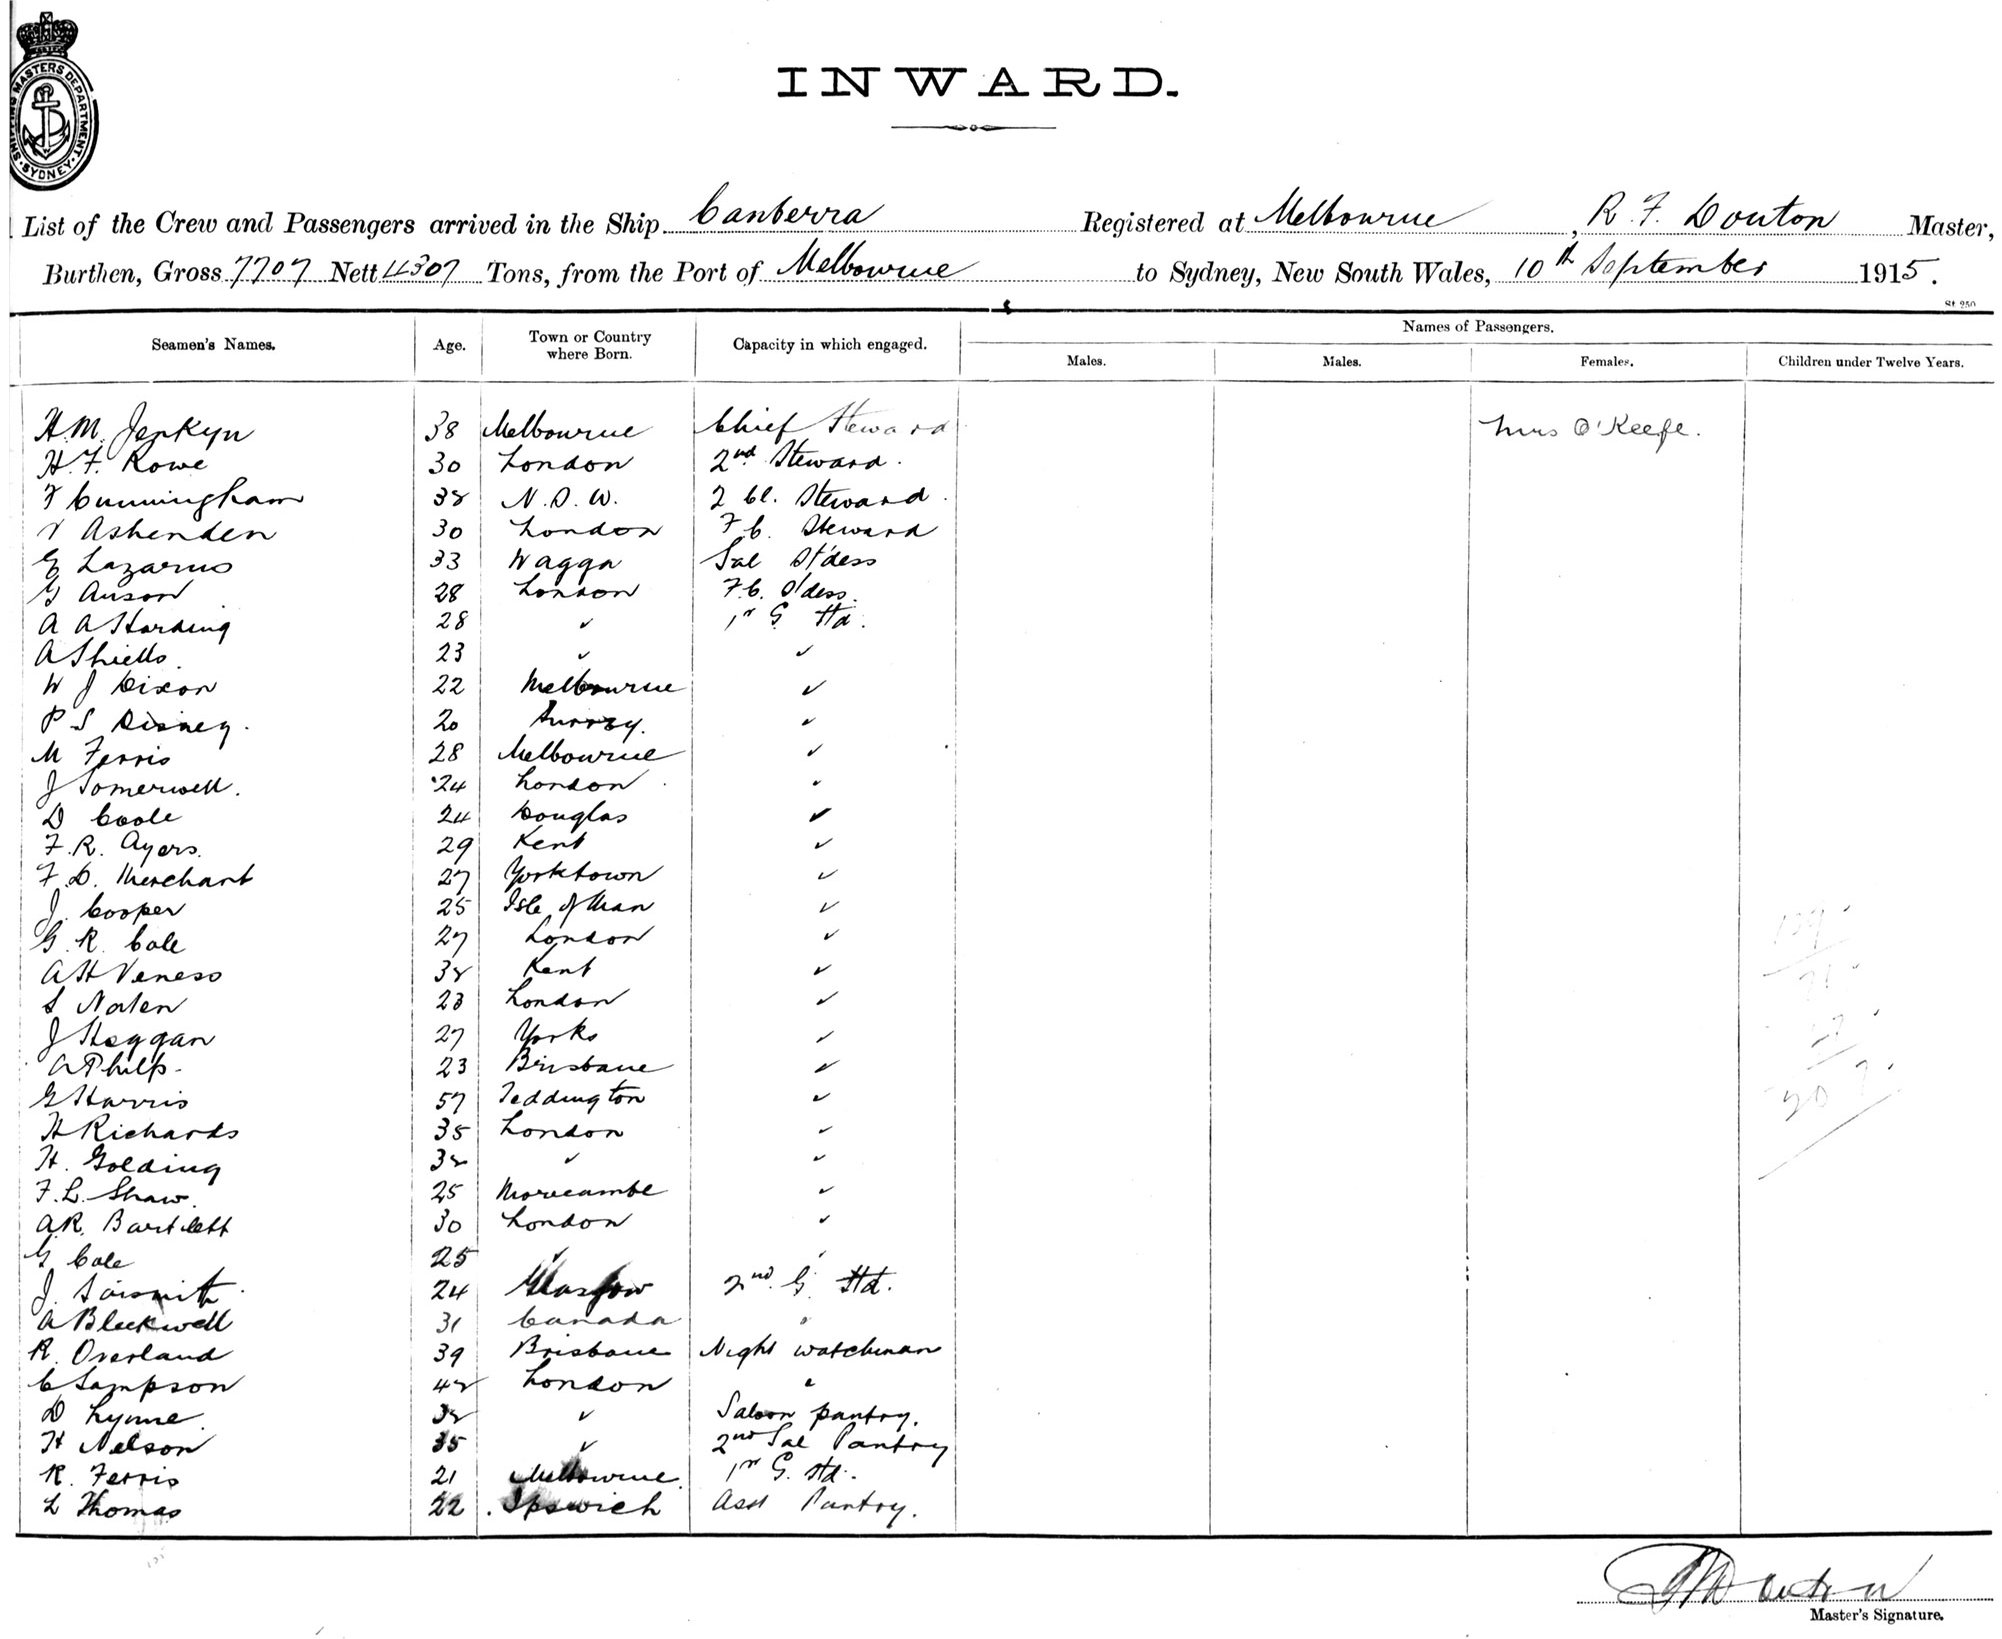 SHIPPING MASTERS DEPARTMENT · SYDNEY ·
INWARD.
List of the Crew and Passengers arrived in the Ship Canberra Registered at Melbourne, R. F. Douton Master,
Burthen, Gross 7707 Nett 4307 Tons, from the Port of Melbourne to Sydney, New South Wales, 10th September 1915.
St 250
Seamen's Names. Age. Town or Country where Born. Capacity in which engaged. Names of Passengers.
Males. Males. Females. Children under Twelve Years.
H. M. Jenkyn 38 Melbourne Chief Steward Mrs O'Keefe.
H. F. Rowe 30 London 2nd Steward.
F Cunningham 38 N. S. W. 2 Cl. Steward.
V Ashenden 30 London F. C. Steward
E Lazarus 33 Wagga Sal St'dess
G Anson 28 London F. C. S'dess.
A A Harding 28 ✓ 1st G. Std.
A Shiells. 23 ✓ ✓
W J Dixon 22 Melbourne ✓
P S Disney. 20 Surrey. ✓
M Ferris 28 Melbourne ✓
J Somerwell. 24 London ✓
D Coole 24 Douglas ✓
F. R. Ayers. 29 Kent ✓
F. D. Merchant 27 Yorktown ✓
J. Cooper 25 Isle of Man ✓
G. R. Cole 27 London ✓
A H Veness 38 Kent ✓
S Nolen 23 London ✓
J Heggan 27 Yorks ✓
A Philp 23 Brisbane ✓
G Harris 57 Teddington ✓
H Richards 35 London ✓
H. Golding 32 ✓ ✓
F. L. Shaw. 25 Morecambe ✓
A. R. Bartlett 30 London ✓
G Cole 25 ✓ ✓
J. 24 Glasgow 2nd G. Std.
A Blackwell 31 Canada "
R. Overland 39 Brisbane Night watchman
C Sampson 42 London "
D Lynne 32 ✓ Saloon pantry.
H Nelson 35 ✓ 2nd Sal Pantry
R. Ferris 21 Melbourne. 1st G. Std.
L Thomas 22 Ipswich Asst Pantry.
R F Douton
Master's Signature.